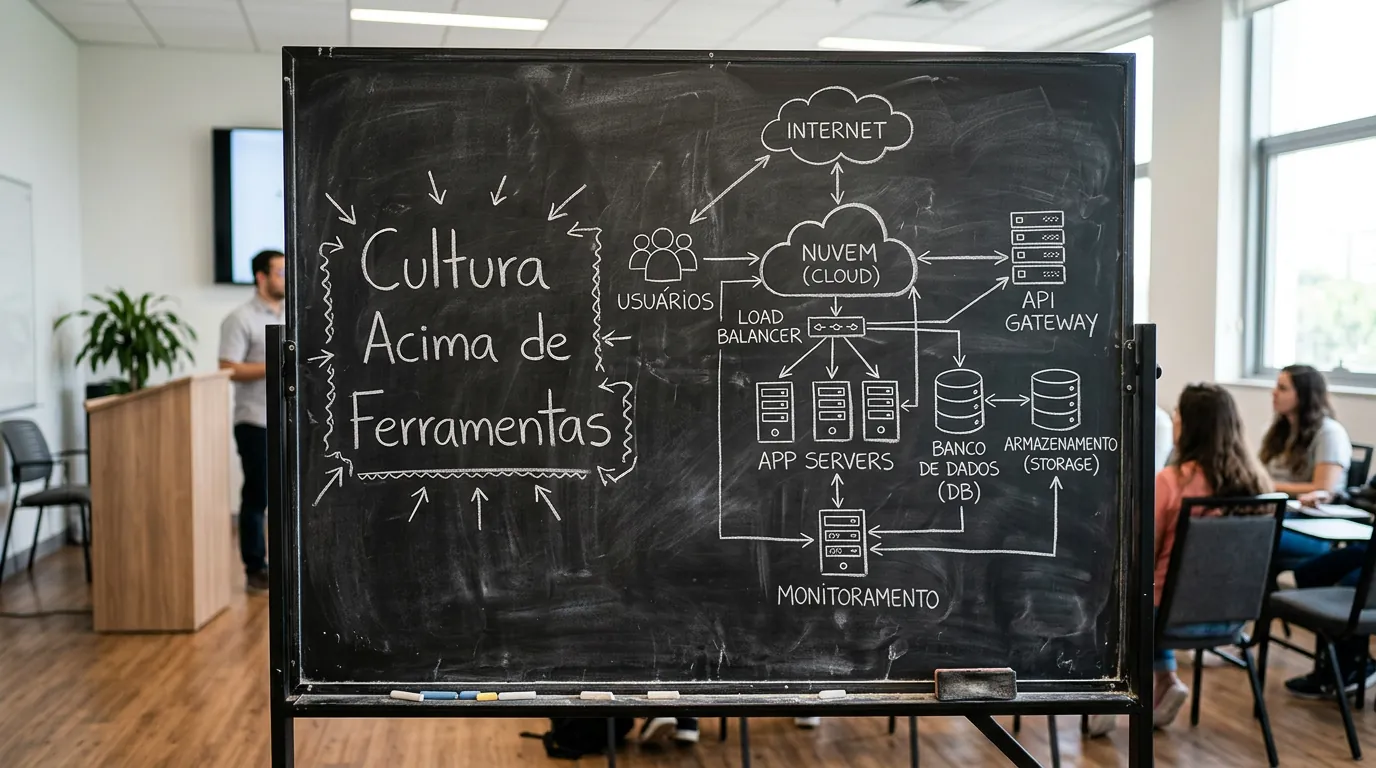 Cultura
Acima de
Ferramentas
INTERNET
NUVEM
(CLOUD)
USUÁRIOS
API
GATEWAY
LOAD
BALANCER
APP SERVERS
BANCO
DE DADOS
(DB)
ARMAZENAMENTO
(STORAGE)
MONITORAMENTO